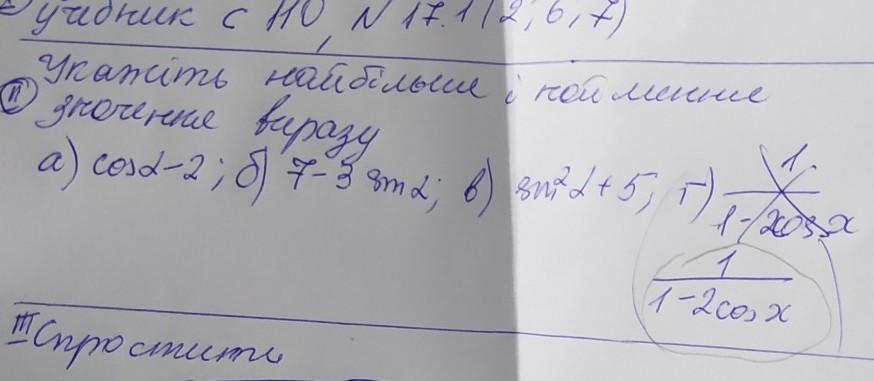 учебник с 110, N 17.1 (2, 6, 7)
Укажіть найбільше і найменше
II значення виразу
а) cosα-2; б) 7-3 sinα; в) sin²α+5; г) 1/(1-2cosx)
1/(1-2cosx)
III Спростити